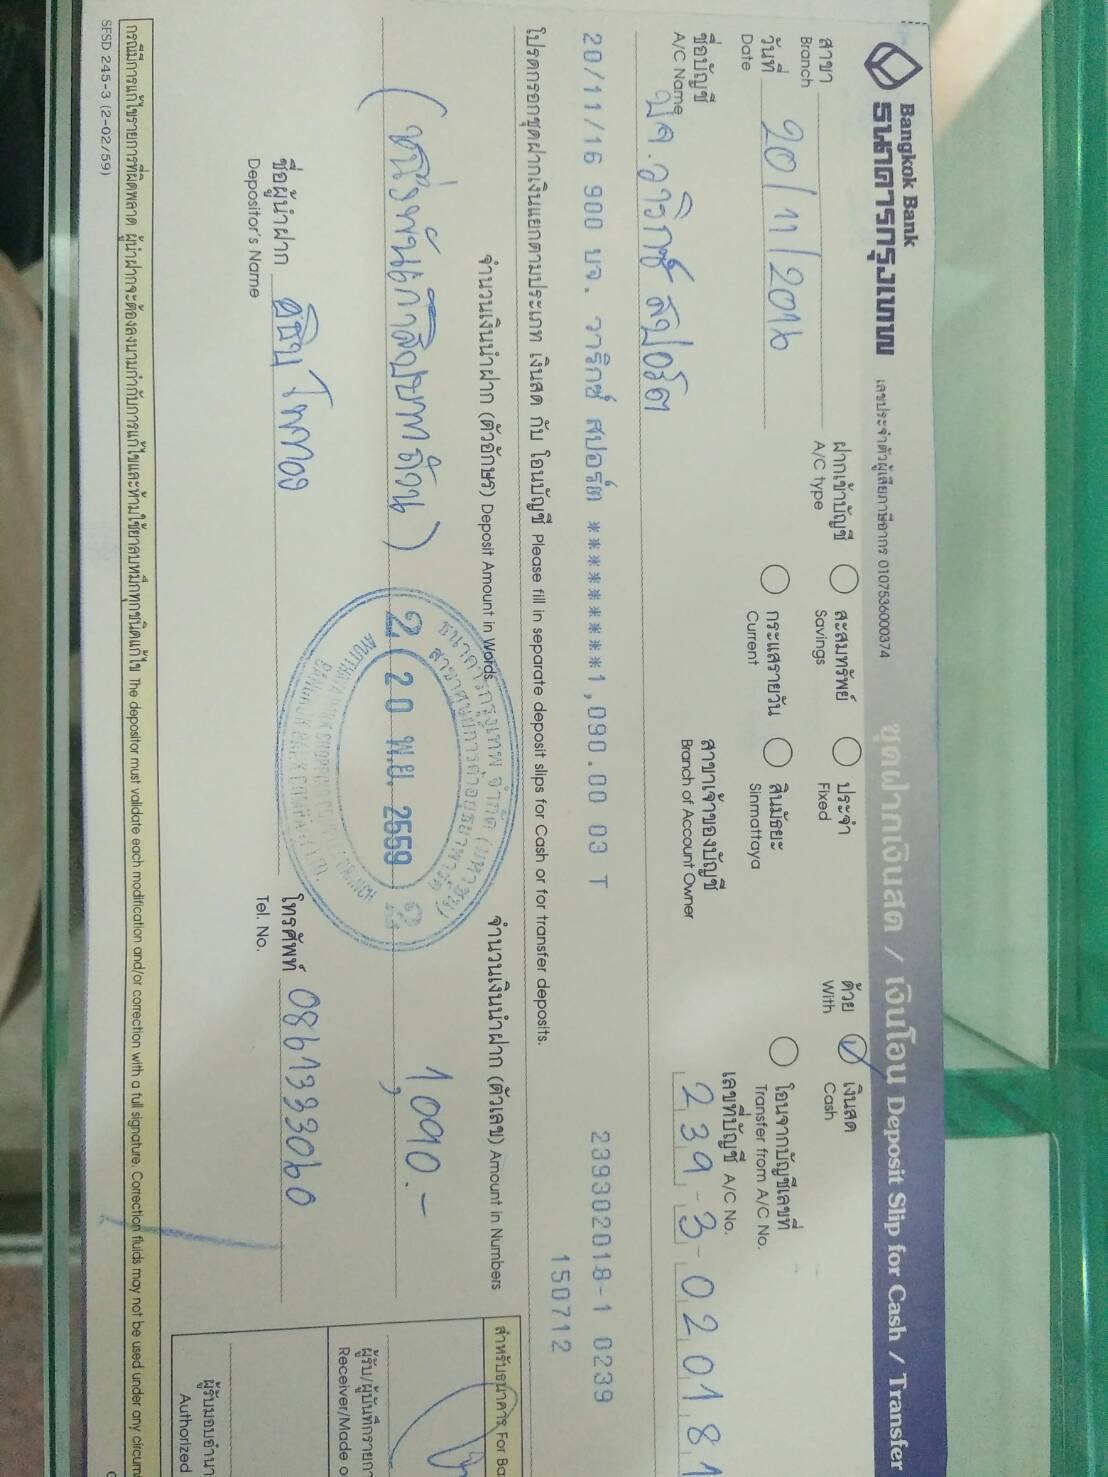 Bangkok Bank
ธนาคารกรุงเทพ
เลขประจำตัวผู้เสียภาษีอากร 0107536000374
ชุดฝากเงินสด / เงินโอน Deposit Slip for Cash / Transfer
สาขา
Branch
วันที่ 20/11/2016
Date
ฝากเข้าบัญชี
A/C type
สะสมทรัพย์
Savings
ประจำ
Fixed
กระแสรายวัน
Current
สินมัธยะ
Sinmattaya
ด้วย
With
เงินสด
Cash
โอนจากบัญชีเลขที่
Transfer from A/C No.
ชื่อบัญชี
A/C Name
บจ. วาริกซ์ สปอร์ต
สาขาเจ้าของบัญชี
Branch of Account Owner
เลขที่บัญชี A/C No.
239-3-02018-1
20/11/16 900 บจ. วาริกซ์ สปอร์ต *********1,090.00 03 T 239302018-1 0239
150712
โปรดกรอกชุดฝากเงินแยกตามประเภท เงินสด กับ โอนบัญชี Please fill in separate deposit slips for Cash or for transfer deposits.
จำนวนเงินนำฝาก (ตัวอักษร) Deposit Amount in Words
จำนวนเงินนำฝาก (ตัวเลข) Amount in Numbers
(หนึ่งพันเก้าสิบบาทถ้วน)
1,090.-
ธนาคารกรุงเทพ จำกัด (มหาชน)
สาขาศูนย์การค้าอยุธยาพาร์ค
20 พ.ย. 2559
AYUTTHAYA PARK SHOPPING CENTER BRANCH
BANGKOK BANK PUBLIC COMPANY LTD.
ชื่อผู้นำฝาก
Depositor's Name
โทรศัพท์ 0861333060
Tel. No.
สำหรับธนาคาร For Ba
ผู้รับ/ผู้บันทึกรายกา
Receiver/Made o
ผู้รับมอบอำนา
Authorized
กรณีมีการแก้ไขรายการที่ผิดพลาด ผู้นำฝากจะต้องลงนามกำกับการแก้ไขและห้ามใช้ยาลบหมึกทุกชนิดแก้ไข The depositor must validate each modification and/or correction with a full signature. Correction fluids may not be used under any circum
SFSD 245-3 (2-02/59)